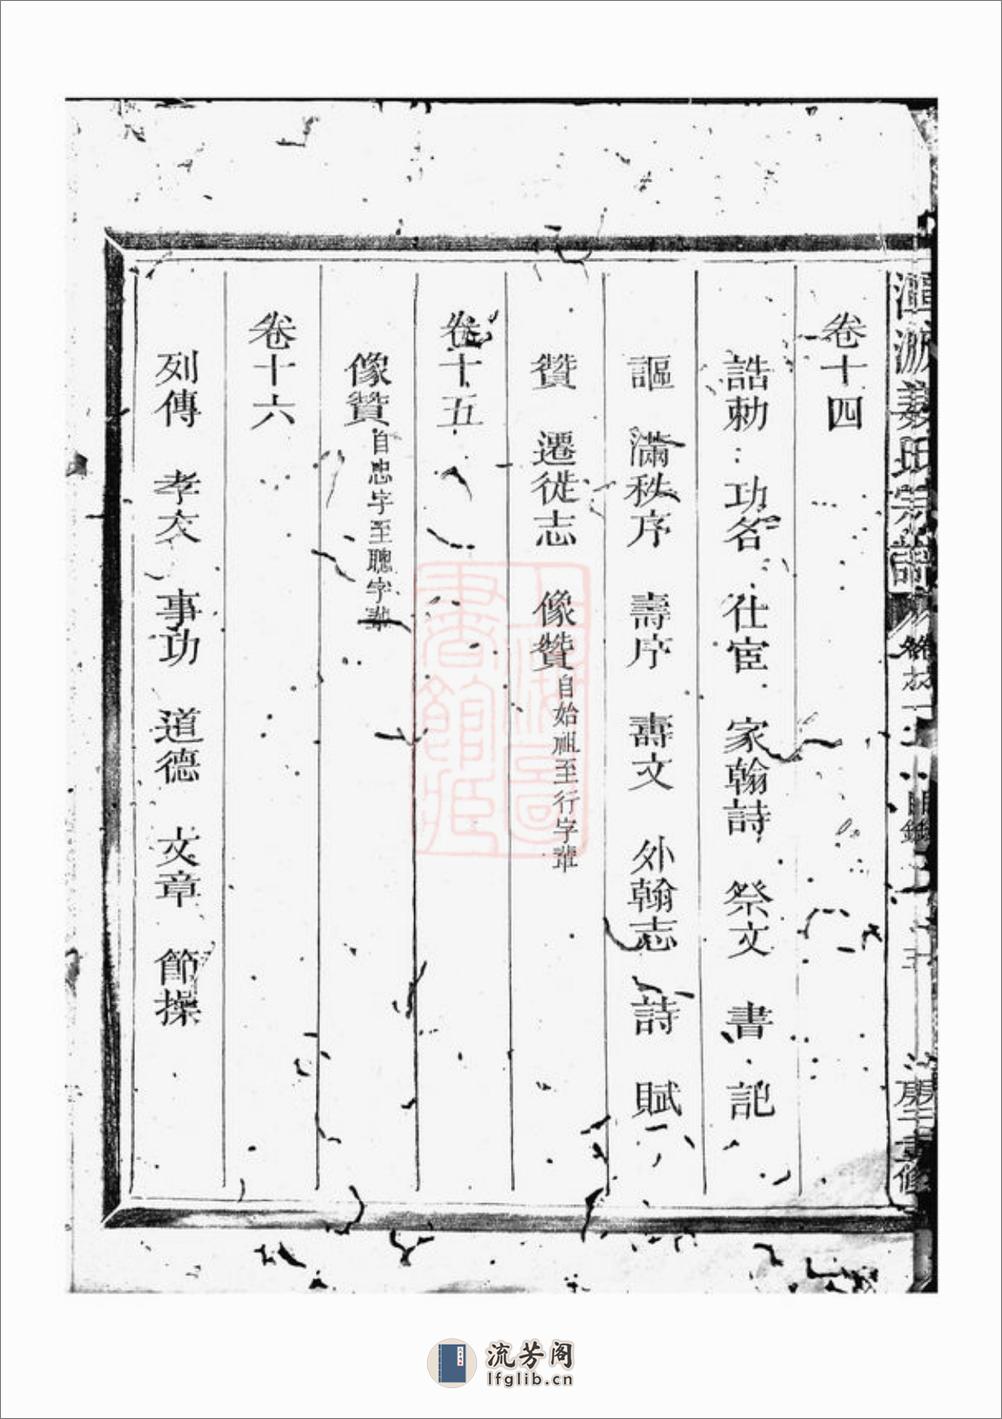 卷十四
誥勅 功名 仕宦 家翰詩 祭文 書 記
謳 滿秩序 壽序 壽文 外翰志 詩 賦
贊 遷徙志 像贊自始祖至行字輩
卷十五
像贊自忠字至聰字輩
卷十六
列傳 孝友 事功 道德 文章 節操
上海圖書館藏
流芳阁
lfglib.cn